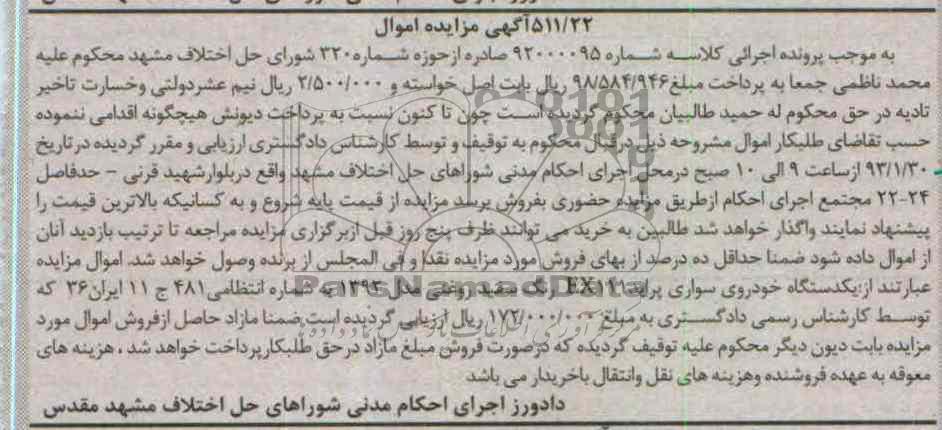 ۵۱۱/۲۲آگهی مزایده اموال
به موجب پرونده اجرائی کلاسه شماره ۹۲۰۰۰۰۹۵ صادره ازحوزه شماره۳۲۰ شورای حل اختلاف مشهد محکوم علیه
محمد ناظمی جمعا به پرداخت مبلغ۹۸/۵۸۴/۹۴۶ ریال بابت اصل خواسته و ۲/۵۰۰/۰۰۰ ریال نیم عشردولتی وخسارت تاخیر
تادیه در حق محکوم له حمید طالبیان محکوم گردیده است چون تا کنون نسبت به پرداخت دیونش هیچگونه اقدامی ننموده
حسب تقاضای طلبکار اموال مشروحه ذیل درقبال محکوم به توقیف و توسط کارشناس دادگستری ارزیابی و مقرر گردیده درتاریخ
۹۳/۱/۳۰ ازساعت ۹ الی ۱۰ صبح درمحل اجرای احکام مدنی شوراهای حل اختلاف مشهد واقع دربلوارشهید قرنی - حدفاصل
۲۲-۲۴ مجتمع اجرای احکام ازطریق مزایده حضوری بفروش برسد مزایده از قیمت پایه شروع و به کسانیکه بالاترین قیمت را
پیشنهاد نمایند واگذار خواهد شد طالبین به خرید می توانند ظرف پنج روز قبل ازبرگزاری مزایده مراجعه تا ترتیب بازدید آنان
از اموال داده شود ضمنا حداقل ده درصد از بهای فروش مورد مزایده نقدا و فی المجلس از برنده وصول خواهد شد. اموال مزایده
عبارتند از:یکدستگاه خودروی سواری پراید۱۱۱EX رنگ سفید روغنی مدل ۱۳۹۲ به شماره انتظامی۴۸۱ ج ۱۱ ایران۳۶ که
توسط کارشناس رسمی دادگستری به مبلغ ۱۷۲/۰۰۰/۰۰۰ ریال ارزیابی گردیده است.ضمنا مازاد حاصل ازفروش اموال مورد
مزایده بابت دیون دیگر محکوم علیه توقیف گردیده که درصورت فروش مبلغ مازاد درحق طلبکارپرداخت خواهد شد ، هزینه های
معوقه به عهده فروشنده وهزینه های نقل وانتقال باخریدار می باشد
دادورز اجرای احکام مدنی شوراهای حل اختلاف مشهد مقدس
ParsNamadData